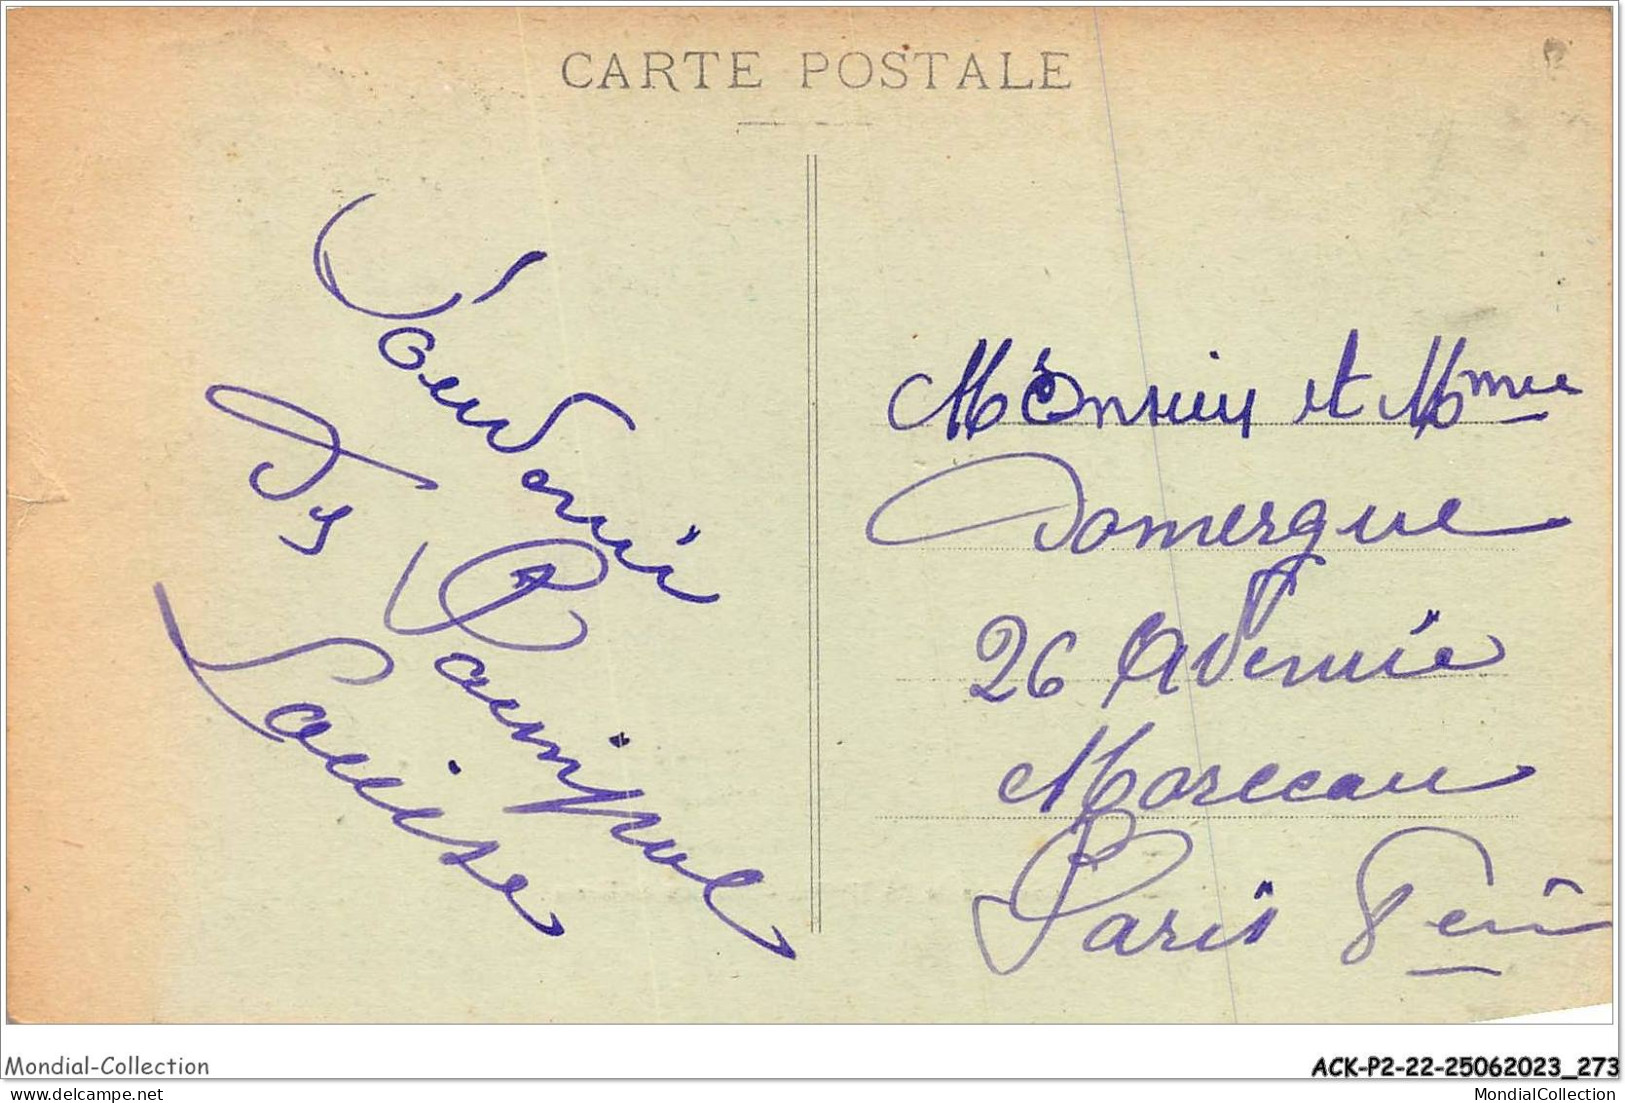 CARTE POSTALE
Souvenir
De Paimpol
Louise
Monsieur et Mme
Domergue
26 Avenue
Marceau
Paris 8em
Mondial-Collection
ACK-P2-22-25062023_273
MondialCollection